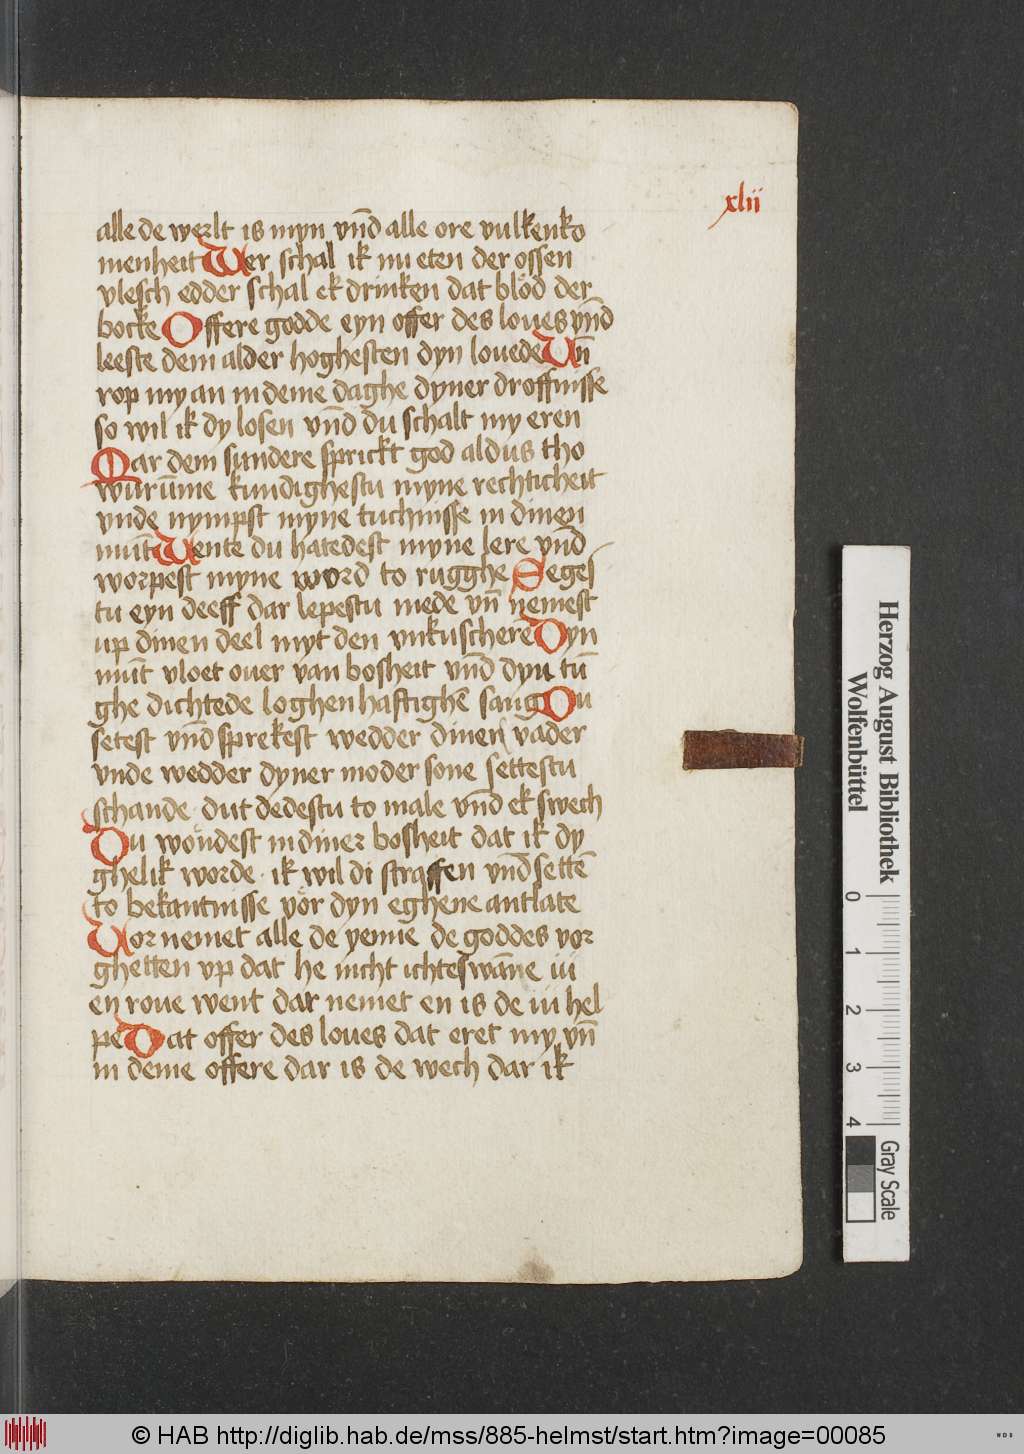 xlii
alle de werlt is myn vn̄d alle ore vulkenko
menheit Wer schal ik nu eten der ossen
vlesch edder schal ek drinken dat blöd der
bocke Offere godde eyn offer des loues vn̄d
leeste dem alder hoghesten dyn louede Un̄
rop my an in deme daghe dyner droffnisse
so wil ik dy losen vn̄d du schalt my eren
Mar dem sundere sprickt god aldus tho
wurūme kundighestu myne rechticheit
vnde nympst myne tuchnisse in dinen
mūt Wente du hatedest myne lere vn̄d
worpest myne word to rugghe Seges
tu eyn deeff dar lepestu mede vn̄ nemest
up dinen deel myt den vnkuscherē Dyn
mūt vloet ouer van bosheit vn̄d dyn tū
ghe dichtede loghenhaftighē sang Du
setest vn̄d sprekest wedder dinen vader
vnde wedder dyner moder sone settestu
schande dut dedestu to male vn̄d ek swech
Du wöndest in diner bosheit dat ik dy
ghelik worde · ik wil di straffen vn̄d settē
to bekantnisse vör dyn eghene antlate
Uornemet alle de yenne de goddes vor
ghetten vp dat he nicht ichteswāne iu
en roue went dar nemet en is de iu hel
pe Dat offer des loues dat eret my vn̄
in deme offere dar is de wech dar ik
Herzog August Bibliothek
Wolfenbüttel
0 1 2 3 4
Gray Scale
© HAB http://diglib.hab.de/mss/885-helmst/start.htm?image=00085